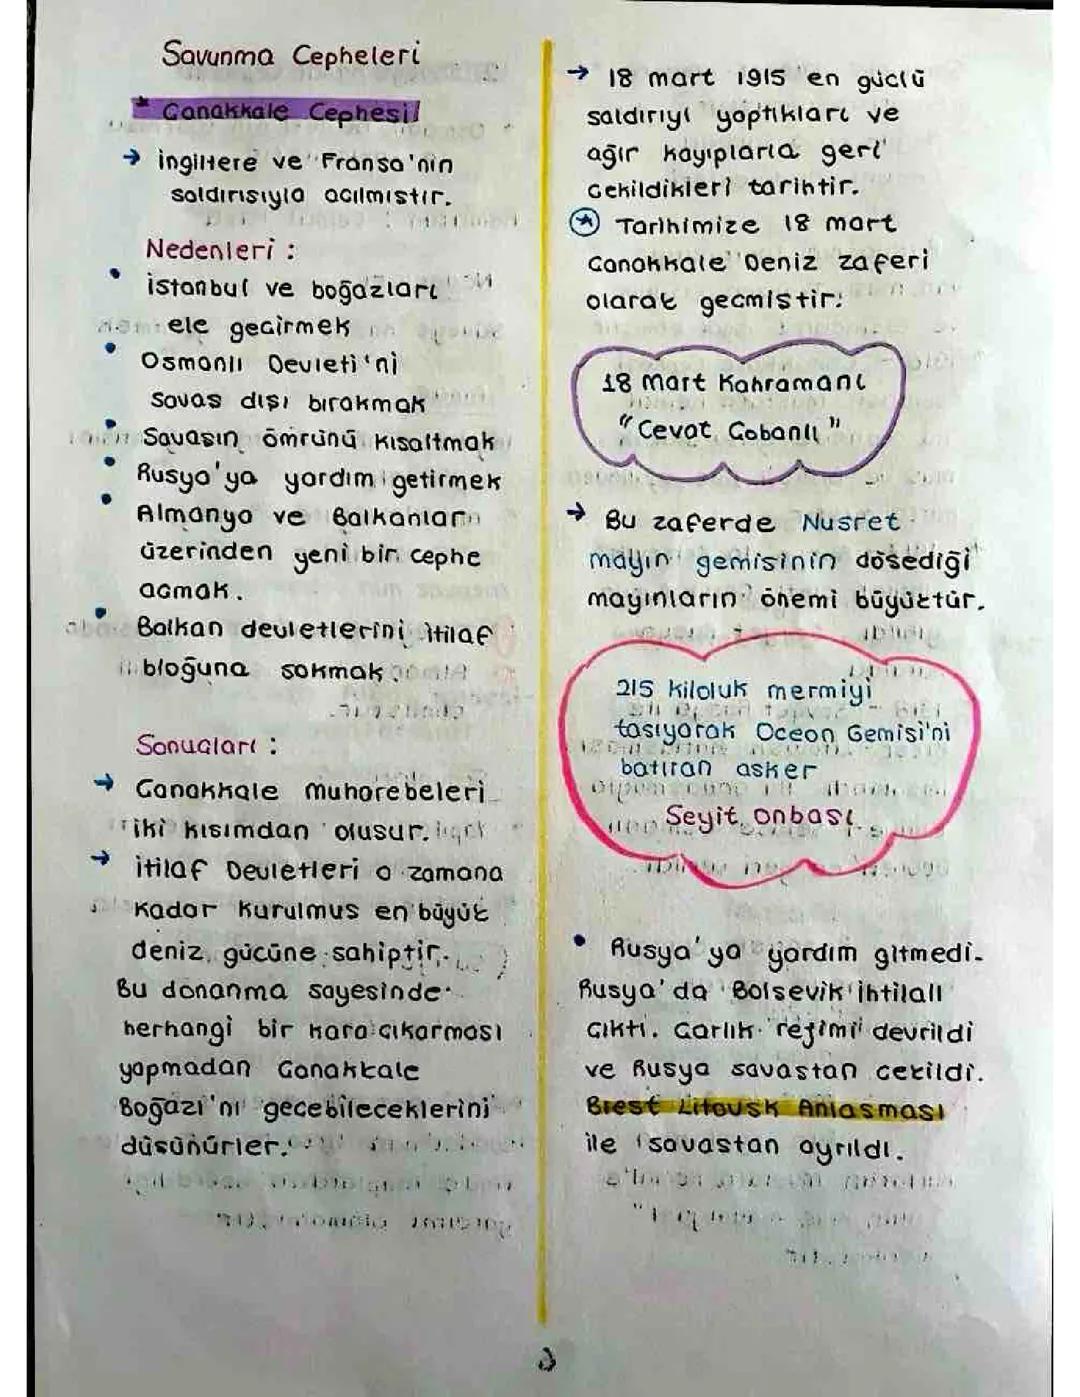 Savunma Cepheleri
* Canakkale Cephesi!
→ ingiltere ve Fransa'nın
saldırısıyla acılmıstır.
Nedenleri :
• istanbul ve boğazları
ele gecirmek
• Osmanlı Devleti'ni
savas dışı bırakmak
• Savasın ömrünü kısaltmak
• Rusya'ya yardım getirmek
• Almanya ve Balkanlar
üzerinden yeni bir cephe
acmak.
• Balkan devletlerini itilaf
bloğuna sokmak
Sonucları :
→ Canakkale muharebeleri
iki kısımdan olusur.
→ itilaf Devletleri o zamana
kadar kurulmus en büyük
deniz gücüne sahiptir.
Bu donanma sayesinde
herhangi bir kara cıkarması
yapmadan Canakkale
Boğazı'nı gecebileceklerini
düsünürler.
→ 18 mart 1915 en güclü
saldırıyı yaptıkları ve
ağır kayıplarla geri
cekildikleri tarihtir.
★ Tarihimize 18 mart
Canakkale Deniz zaferi
olarak gecmistir.
18 Mart Kahramanı
"Cevat Cobanlı"
→ Bu zaferde Nusret
mayın gemisinin dösediği
mayınların önemi büyüktür.
215 kiloluk mermiyi
tasıyarak Ocean Gemisi'ni
batıran asker
Seyit onbası
• Rusya'ya yardım gitmedi.
Rusya'da Bolsevik ihtilali
cıktı. Carlık rejimi devrildi
ve Rusya savastan cekildi.
Brest Litovsk Anlasması
ile savastan ayrıldı.